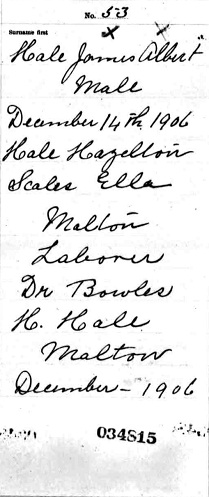 No. 53
Surname first
Hale James Albert
Male
December 14th, 1906
Hale Hazelton
Scales Ella
Malton
Laborer
Dr Bowles
H. Hale
Malton
December - 1906
034815